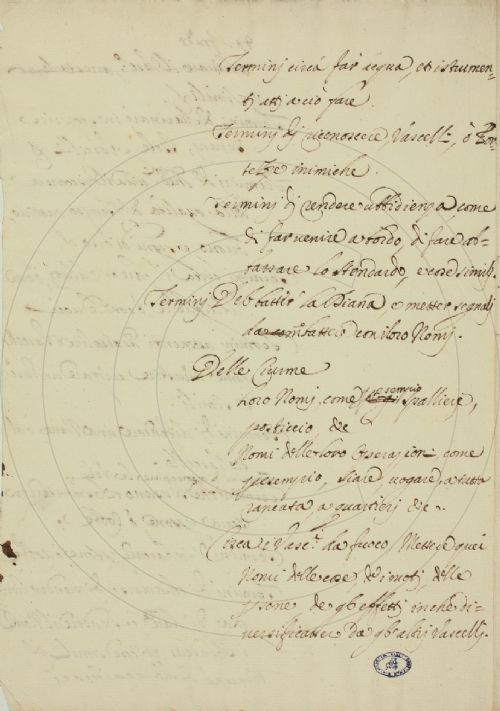 Terminj circa far acqua, et istrumen-
ti attj a ciò fare.
Terminj dj riconoscere Vascellj, ò For-
tezze inimiche.
Terminj dj rendere ubbidienza come
di far venire a bordo, di fare ab-
bassare lo stendardo, e cose simili.
Terminj Del batter la Diana, e metter segnali
da combattere con i loro Nomj.
Delle Ciurme
Loro Nomj, come per esempio spalliere,
posticcio
Nomi delle loro operazioni, come
per esempio, sciare, vogare, a tutta
rancata, a quartieri
Circa e Vasc.lj da fuoco, Mettere quei
Nomi delle cose, de i motj, delle
psone, de glj effettj, in che di-
versificativi Da glj altrj Vascellj.